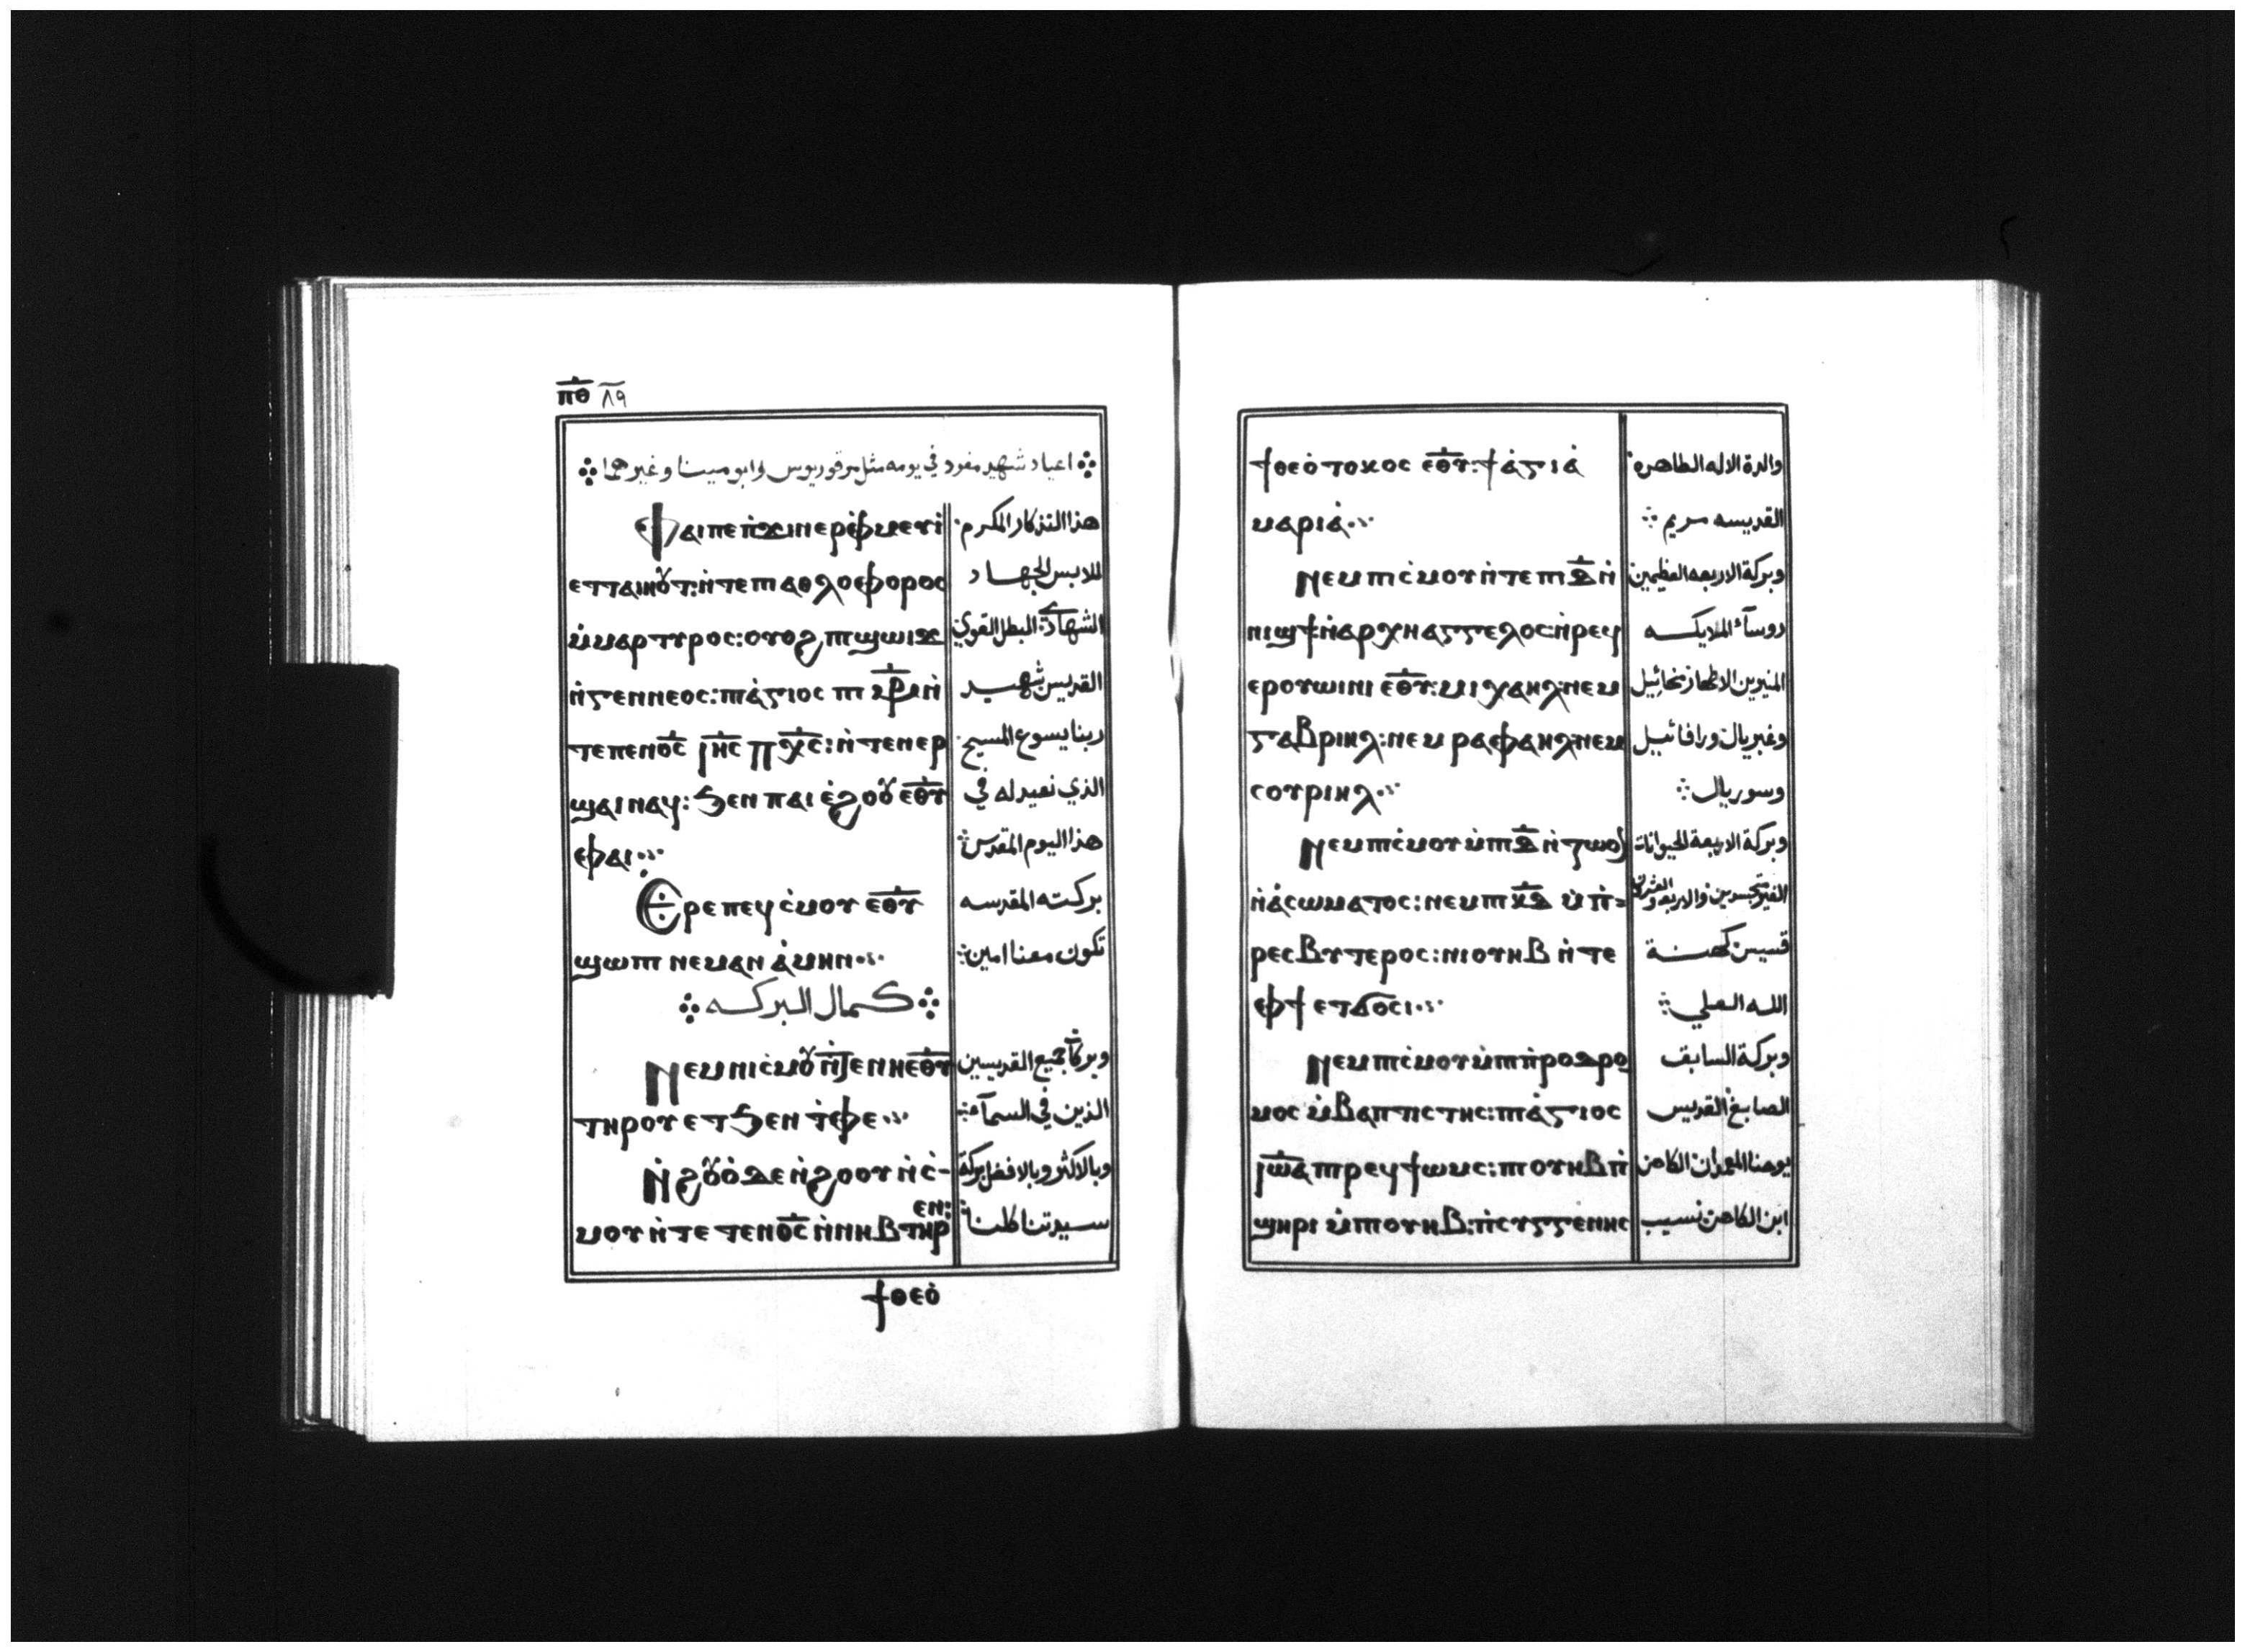 ⲡ̅ⲑ̅ ٨٩
اعياد شهيد مفرد في يومه مثل مرقوريوس وابو مينا وغيرهما
ⲫⲁⲓⲡⲉⲡ̀ϫⲓⲛⲉⲣⲫ̀ⲙⲉⲩⲓ̀ هذا التذكار المكرم
ⲉⲧⲧⲁⲓⲏⲟⲩⲧ:ⲛ̀ⲧⲉⲡⲓⲁⲑⲗⲟⲫⲟⲣⲟⲥ للابس الجهاد
ⲙ̀ⲙⲁⲣⲧⲩⲣⲟⲥ:ⲟⲩⲟϩ ⲡⲓϣⲱⲓϫ الشهادي: البطل القوي
ⲛ̀ⲅⲉⲛⲛⲉⲟⲥ:ⲡⲓⲁ̀ⲅⲓⲟⲥ ⲡⲓⲙ̅ⲣ̅ ⲛ̀ القديس شهيد
ⲧⲉⲡⲉⲛⲟ̅ⲥ̅ ⲓ̅ⲏ̅ⲥ̅ ⲡ̅ⲭ̅ⲥ̅:ⲛ̀ⲧⲉⲛⲉⲣ ربنا يسوع المسيح
ϣⲁⲓ ⲛⲁϥ:ϧⲉⲛ ⲡⲁⲓ ⲉ̀ϩⲟⲟⲩ ⲉ̅ⲑ̅ⲩ̅ الذي نعيد له في
ⲫⲁⲓ هذا اليوم المقدس
Ⲉⲣⲉⲡⲉϥⲥ̀ⲙⲟⲩ ⲉ̅ⲑ̅ⲩ̅ بركته المقدسه
ϣⲱⲡⲓ ⲛⲉⲙⲁⲛ ⲁ̀ⲙⲏⲛ تكون معنا امين
كمال البركه
Ⲛⲉⲙⲛⲓⲥ̀ⲙⲟⲩ ⲛ̀ϯⲉⲛⲛⲏⲉ̅ⲑ̅ⲩ̅ وبركات جميع القديسين
ⲧⲏⲣⲟⲩ ⲉⲧϧⲉⲛ ⲧ̀ⲫⲉ الذين في السمآء
Ⲛ̀ϩⲟⲩⲟ̀ ⲇⲉ ⲛ̀ϩⲟⲟⲩ ⲛ̀ⲥ̀- وبالاكثر وبالافضل بركة
ⲙⲟⲩ ⲛ̀ⲧⲉ ⲧⲉⲛⲟ̅ⲥ̅ ⲛ̀ⲛⲏⲃ ⲧⲏⲣⲉⲛ: سيدتنا كلنا
ϯⲑⲉⲟ̀
ϯⲑⲉⲟ̀ⲧⲟⲕⲟⲥ ⲉ̅ⲑ̅ⲩ̅:ϯⲁ̀ⲅⲓⲁ̀ والدة الاله الطاهره
ⲙⲁⲣⲓⲁ̀ القديسه مريم
Ⲛⲉⲙ ⲡⲓⲥ̀ⲙⲟⲩ ⲛ̀ⲧⲉ ⲡⲓⲇ̅ ⲛ̀ وبركة الاربعه العظيمين
ⲛⲓϣϯ:ⲛ̀ⲁⲣⲭⲏⲁⲅⲅⲉⲗⲟⲥ:ⲛ̀ⲣⲉϥ روسآء الملايكه
ⲉⲣⲟⲩⲱⲓⲛⲓ ⲉ̅ⲑ̅ⲩ̅:ⲙⲓⲭⲁⲏⲗ:ⲛⲉⲙ المنيرين الاطهار ميخائيل
ⲅⲁⲃⲣⲓⲏⲗ:ⲛⲉⲙ ⲣⲁⲫⲁⲏⲗ:ⲛⲉⲙ وغبريال ورافائيل
ⲥⲟⲩⲣⲓⲏⲗ وسوريال
Ⲛⲉⲙ ⲡⲓⲥ̀ⲙⲟⲩ ⲙ̀ⲡⲓⲇ̅ ⲛ̀ⲍⲱⲟⲛ وبركة الاربعة الحيوانات
ⲛ̀ⲁ̀ⲥⲱⲙⲁⲧⲟⲥ:ⲛⲉⲙ ⲡⲓⲕ̅ⲇ̅ ⲙ̀ⲡ̀= الغير متجسدين والاربعه والعشرين
ⲣⲉⲥⲃⲩⲧⲉⲣⲟⲥ:ⲛⲓⲟⲩⲏⲃ ⲛ̀ⲧⲉ قسيس كهنة
ⲫϯ ⲉⲧϭⲟⲥⲓ الله العلي
Ⲛⲉⲙ ⲡⲓⲥ̀ⲙⲟⲩ ⲙ̀ⲡⲓⲡ̀ⲣⲟⲇⲣⲟ وبركة السابق
ⲙⲟⲥ ⲙ̀ⲃⲁⲡⲧⲓⲥⲧⲏⲥ:ⲡⲓⲁ̀ⲅⲓⲟⲥ الصابغ القديس
ⲓ̅ⲱ̅ⲁ̅ ⲡⲓⲣⲉϥϯⲱⲙⲥ:ⲡⲓⲟⲩⲏⲃ ⲡ̀ يوحنا المعمدان الكاهن
ϣⲏⲣⲓ ⲙ̀ⲡⲓⲟⲩⲏⲃ:ⲡ̀ⲥⲩⲅⲅⲉⲛⲏⲥ ابن الكاهن نسيب